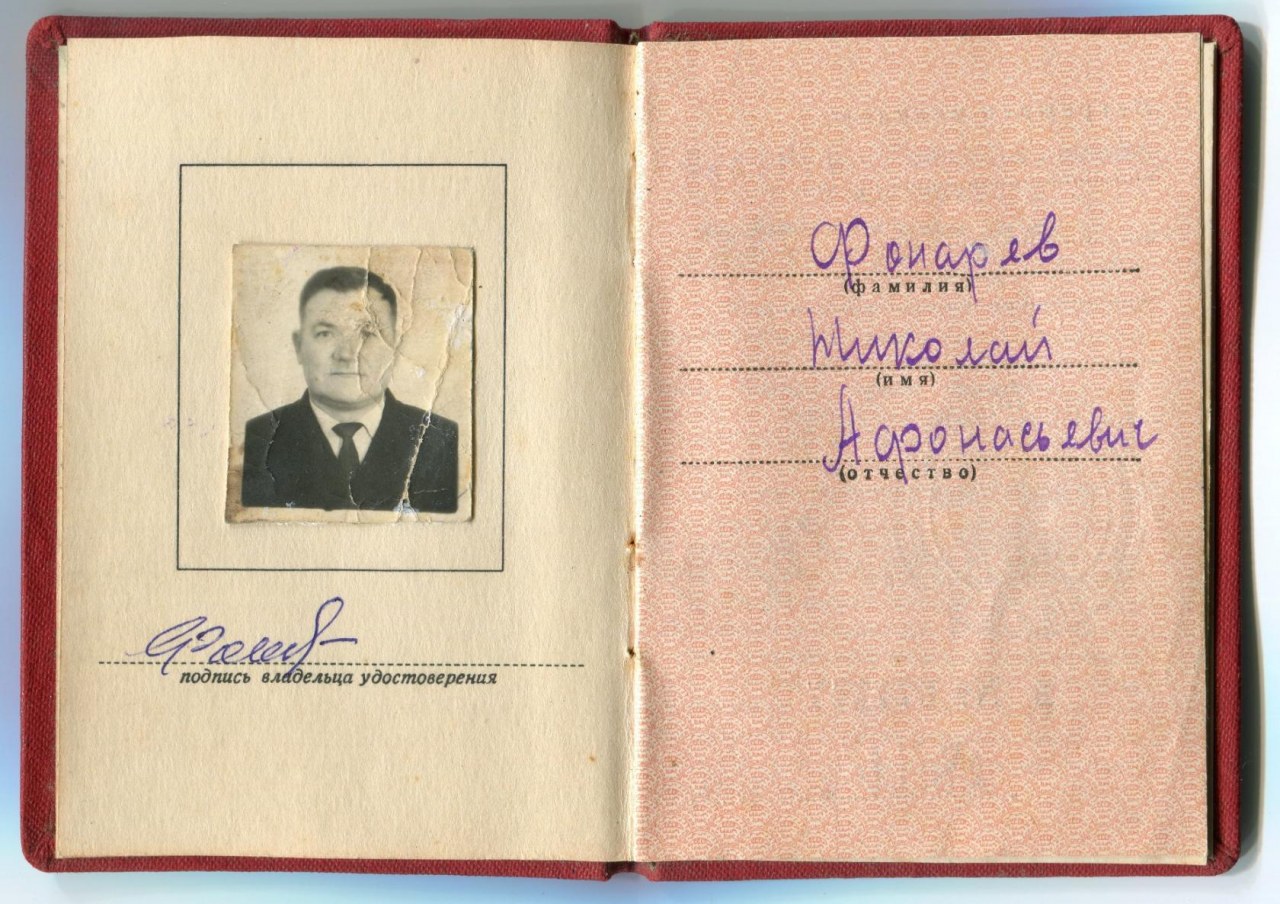 подпись владельца удостоверения
Фонарев
(фамилия)
Николай
(имя)
Афонасьевич
(отчество)